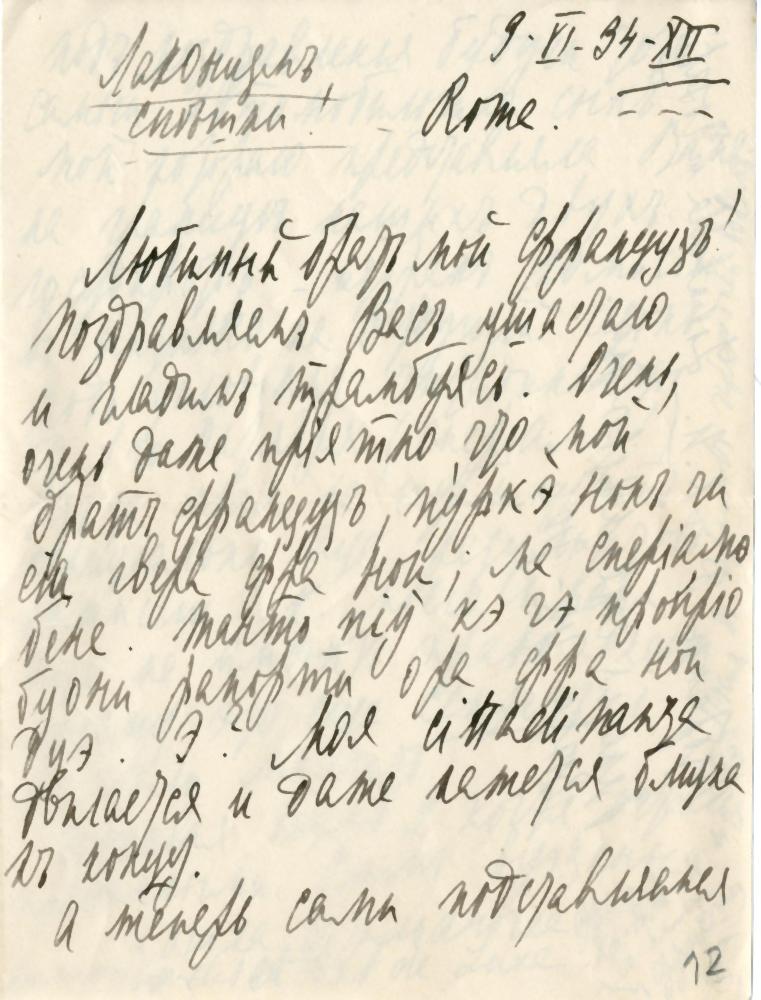 9-VI-34-XII
Лаконизмъ,
спѣшли!
Rome.
Любимый братъ мой французъ!
Поздравляемъ Васъ ушастаго
и гладимъ трамбуясь. Очень,
очень даже пріятно, что мой
братъ французъ, пуркэ нонъ чи
сіа гвера фра ной; ма сперіамо
бене. Танто піу кэ гэ пропріо
буони рапорти ора фра ной
дуэ. Э? Моя cittadinanza
двигается и даже кажется близка
къ концу.
А теперь сами подставляемся
12